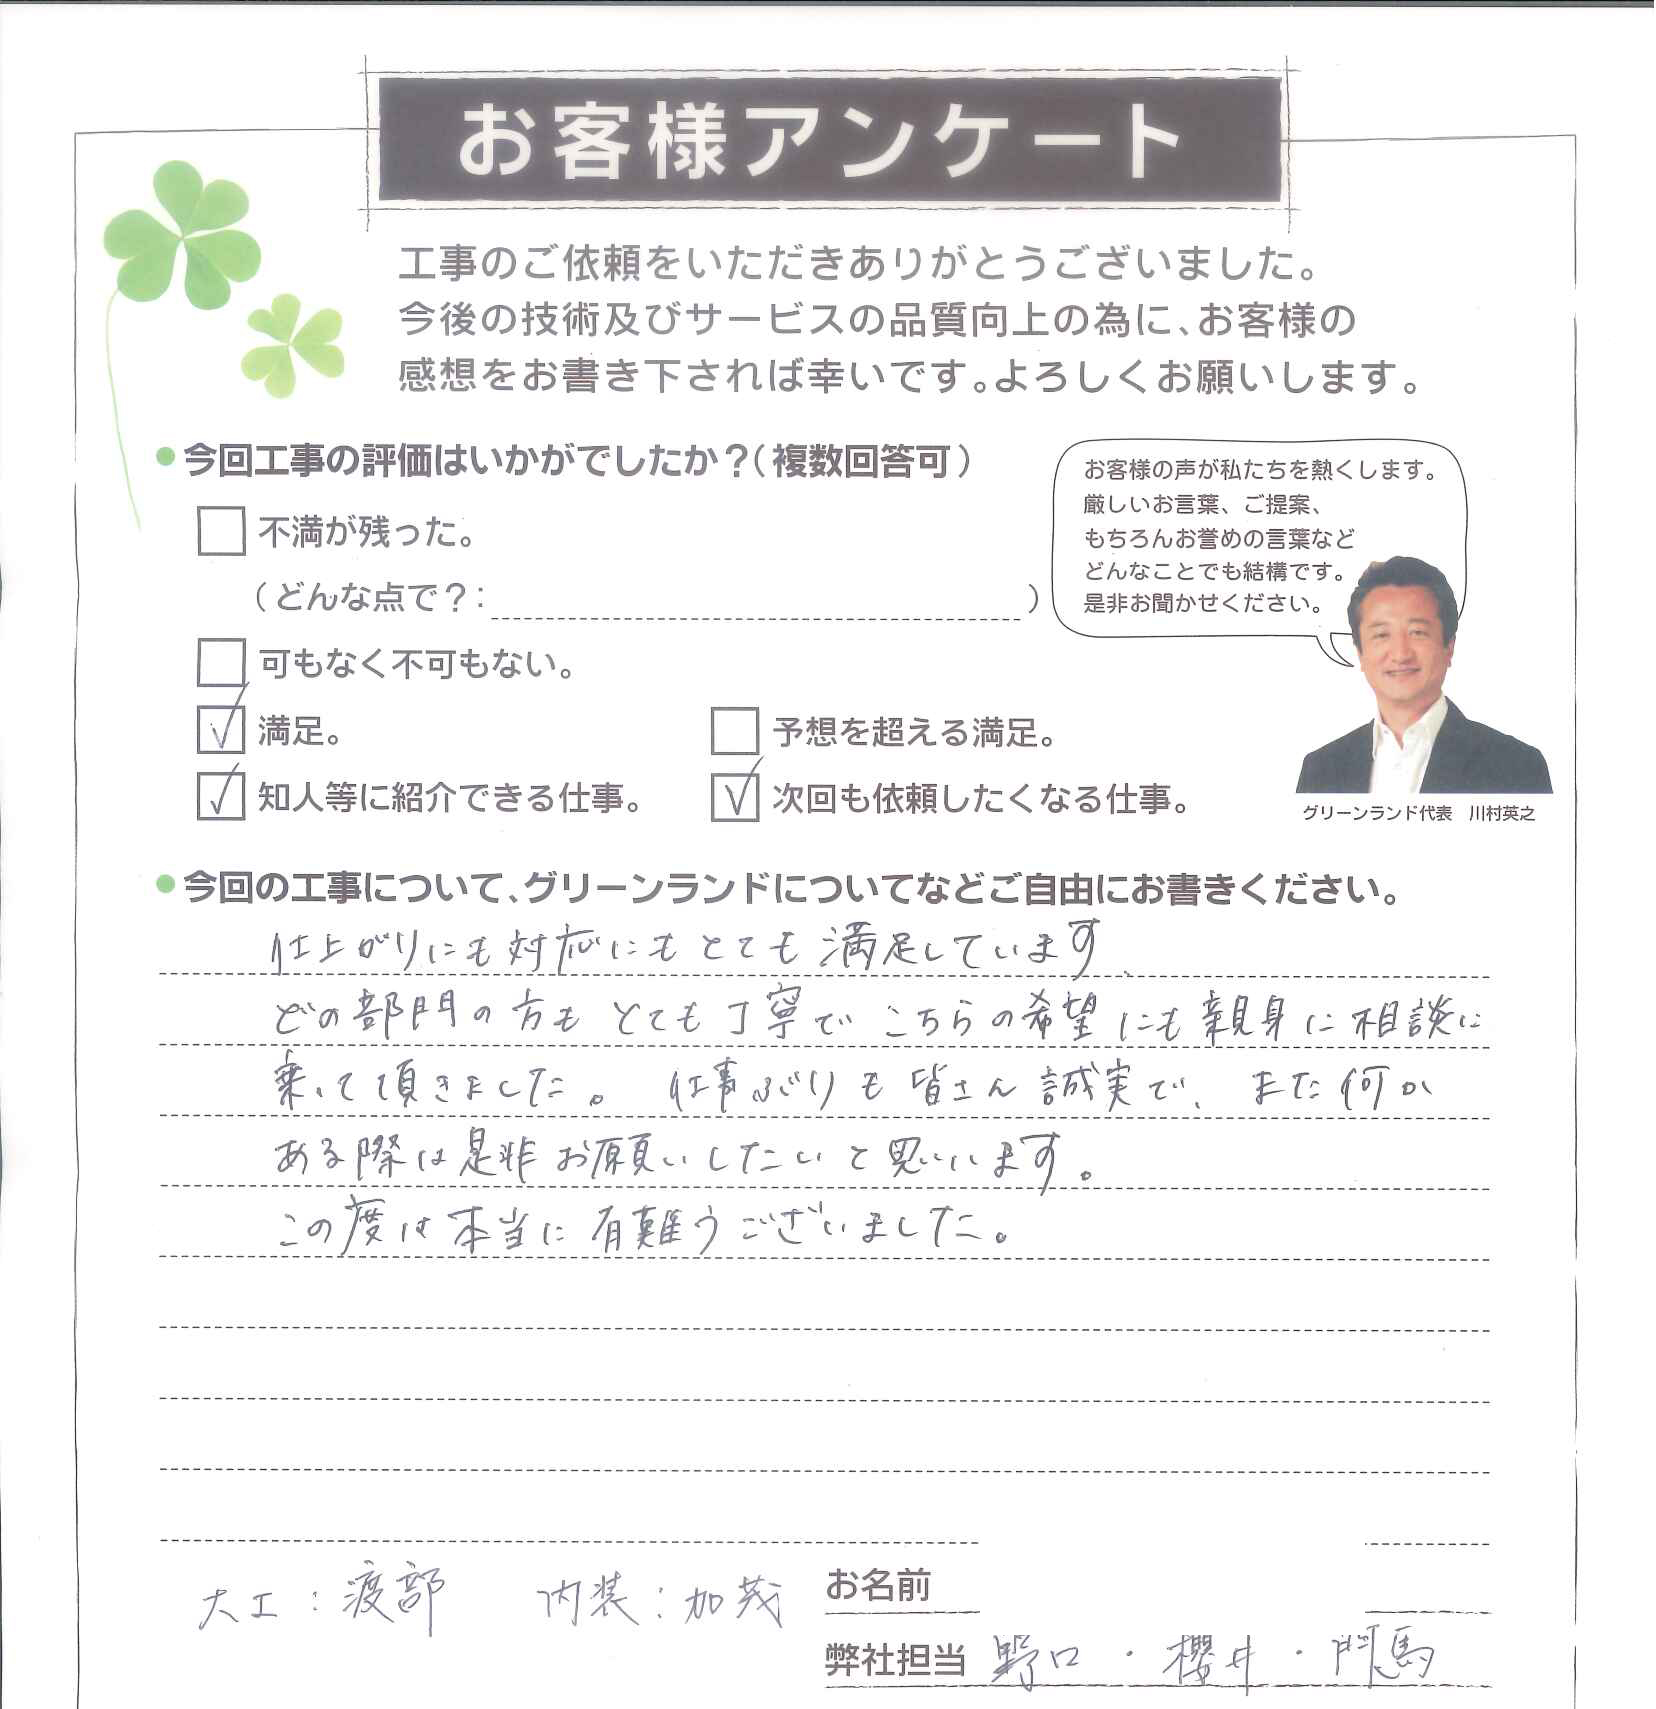 お客様アンケート
工事のご依頼をいただきありがとうございました。
今後の技術及びサービスの品質向上の為に、お客様の
感想をお書き下されば幸いです。よろしくお願いします。
今回工事の評価はいかがでしたか？（複数回答可）
不満が残った。
（どんな点で？：　　　）
可もなく不可もない。
満足。
予想を超える満足。
知人等に紹介できる仕事。
次回も依頼したくなる仕事。
お客様の声が私たちを熱くします。
厳しいお言葉、ご提案、
もちろんお誉めの言葉など
どんなことでも結構です。
是非お聞かせください。
グリーンランド代表　川村英之
今回の工事について、グリーンランドについてなどご自由にお書きください。
仕上がりにも対応にもとても満足しています、
どの部門の方もとても丁寧でこちらの希望にも親身に相談に
乗って頂きました。仕事ぶりも皆さん誠実で、また何か
ある際は是非お願いしたいと思います。
この度は本当に有難うございました。
大工：渡部　内装：加茂
お名前
弊社担当　野口・櫻井・門馬